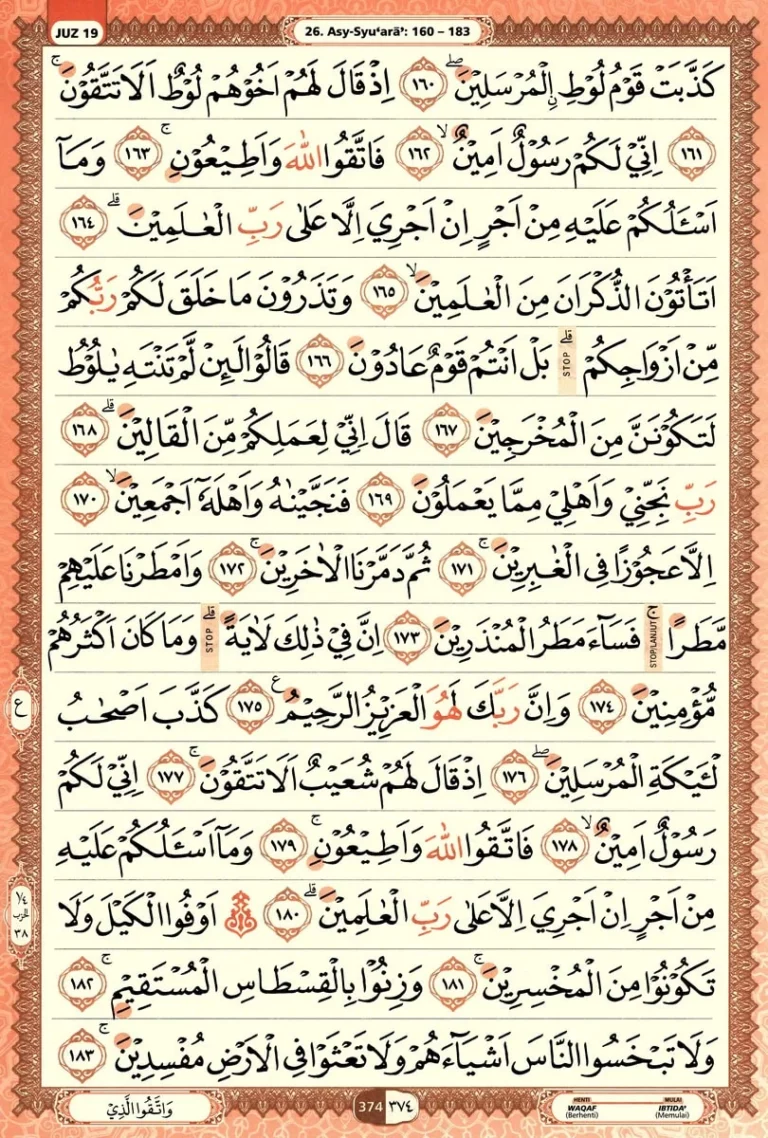 JUZ 19
26. Asy-Syu‘arā’: 160 – 183
كَذَّبَتْ قَوْمُ لُوْطِ ࣙالْمُرْسَلِيْنَۖ ١٦٠ اِذْ قَالَ لَهُمْ اَخُوْهُمْ لُوْطٌ اَلَا تَتَّقُوْنَۚ
١٦١ اِنِّيْ لَكُمْ رَسُوْلٌ اَمِيْنٌۙ ١٦٢ فَاتَّقُوا اللّٰهَ وَاَطِيْعُوْنِۚ ١٦٣ وَمَآ
اَسْـَٔلُكُمْ عَلَيْهِ مِنْ اَجْرٍ اِنْ اَجْرِيَ اِلَّا عَلٰى رَبِّ الْعٰلَمِيْنَۗ ١٦٤
اَتَأْتُوْنَ الذُّكْرَانَ مِنَ الْعٰلَمِيْنَۙ ١٦٥ وَتَذَرُوْنَ مَا خَلَقَ لَكُمْ رَبُّكُمْ
مِّنْ اَزْوَاجِكُمْۗ STOP بَلْ اَنْتُمْ قَوْمٌ عَادُوْنَ ١٦٦ قَالُوْا لَىِٕنْ لَّمْ تَنْتَهِ يٰلُوْطُ
لَتَكُوْنَنَّ مِنَ الْمُخْرَجِيْنَ ١٦٧ قَالَ اِنِّيْ لِعَمَلِكُمْ مِّنَ الْقَالِيْنَۗ ١٦٨
رَبِّ نَجِّنِيْ وَاَهْلِيْ مِمَّا يَعْمَلُوْنَ ١٦٩ فَنَجَّيْنٰهُ وَاَهْلَهٗٓ اَجْمَعِيْنَۙ ١٧٠
اِلَّا عَجُوْزًا فِى الْغٰبِرِيْنَۚ ١٧١ ثُمَّ دَمَّرْنَا الْاٰخَرِيْنَۚ ١٧٢ وَاَمْطَرْنَا عَلَيْهِمْ
مَّطَرًاۚ STOP/LANJUT فَسَاۤءَ مَطَرُ الْمُنْذَرِيْنَ ١٧٣ اِنَّ فِيْ ذٰلِكَ لَاٰيَةًۗ STOP وَمَا كَانَ اَكْثَرُهُمْ
مُّؤْمِنِيْنَ ١٧٤ وَاِنَّ رَبَّكَ لَهُوَ الْعَزِيْزُ الرَّحِيْمُ ࣖ ١٧٥ كَذَّبَ اَصْحٰبُ
لْـَٔيْكَةِ الْمُرْسَلِيْنَۖ ١٧٦ اِذْ قَالَ لَهُمْ شُعَيْبٌ اَلَا تَتَّقُوْنَۚ ١٧٧ اِنِّيْ لَكُمْ
رَسُوْلٌ اَمِيْنٌۙ ١٧٨ فَاتَّقُوا اللّٰهَ وَاَطِيْعُوْنِۚ ١٧٩ وَمَآ اَسْـَٔلُكُمْ عَلَيْهِ
مِنْ اَجْرٍ اِنْ اَجْرِيَ اِلَّا عَلٰى رَبِّ الْعٰلَمِيْنَۗ ١٨٠ ۞ اَوْفُوا الْكَيْلَ وَلَا
تَكُوْنُوْا مِنَ الْمُخْسِرِيْنَۚ ١٨١ وَزِنُوْا بِالْقِسْطَاسِ الْمُسْتَقِيْمِۚ ١٨٢
وَلَا تَبْخَسُوا النَّاسَ اَشْيَاۤءَهُمْ وَلَا تَعْثَوْا فِى الْاَرْضِ مُفْسِدِيْنَۚ ١٨٣
ع
١/٤
الحزب
٣٨
وَاتَّقُوا الَّذِيْ
374 ٣٧٤
HENTI WAQAF (Berhenti)
MULAI IBTIDA’ (Memulai)